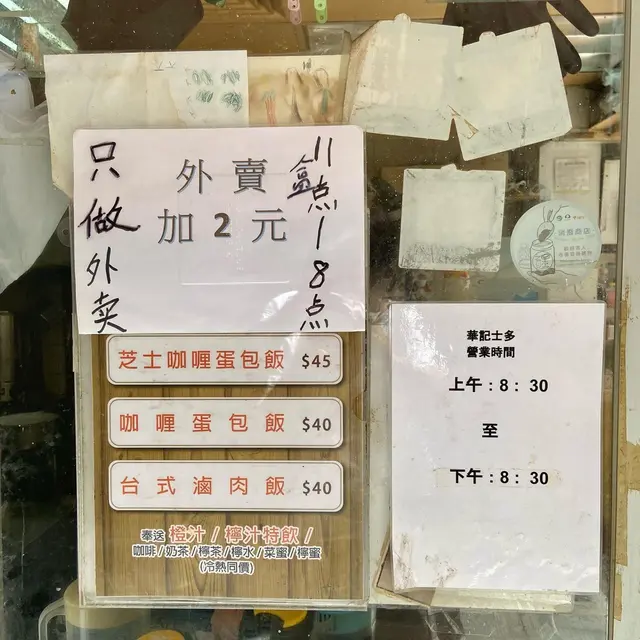 只做外卖
外賣
加2元
盒
11点-8点
芝士咖喱蛋包飯 $45
咖喱蛋包飯 $40
台式滷肉飯 $40
奉送 橙汁 / 檸汁特飲 /
咖啡/奶茶/檸茶/檸水/菜蜜/檸蜜
(冷熱同價)
華記士多
營業時間
上午：8：30
至
下午：8：30